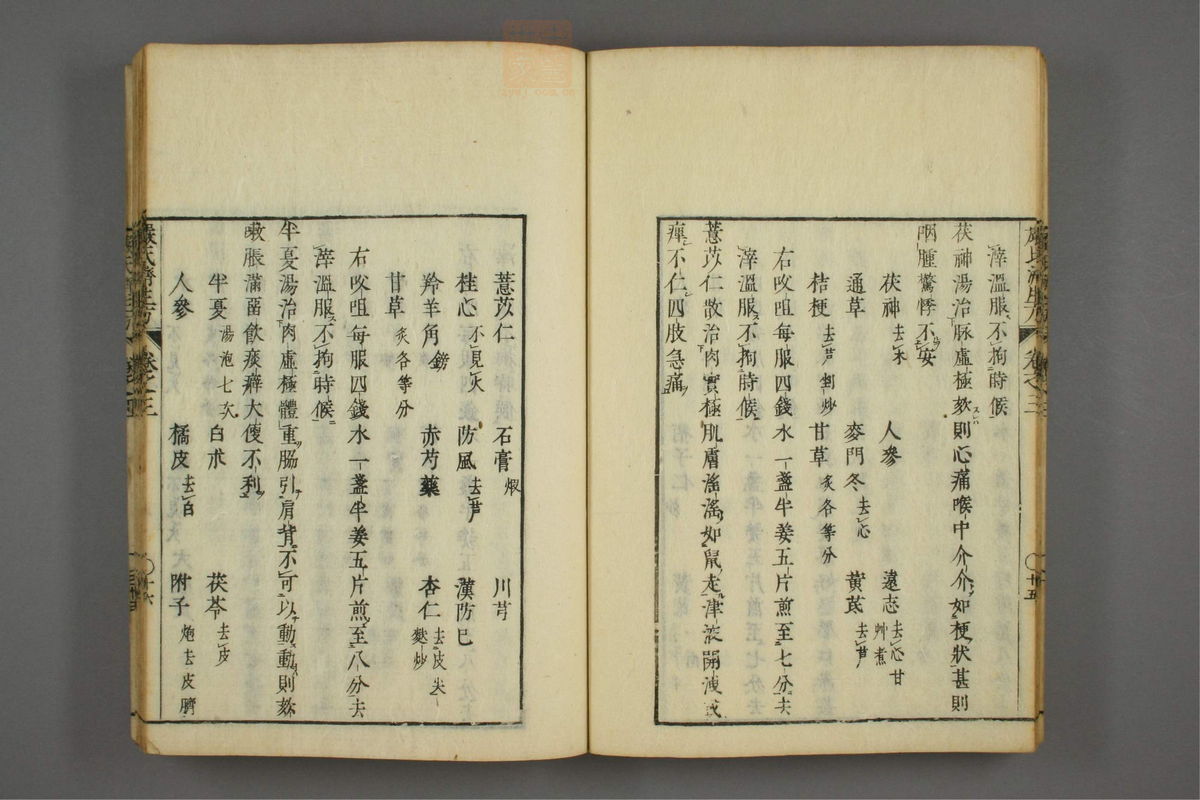 滓溫服不拘時候
茯神湯治脉虛極欬則心痛喉中介介如梗狀甚則
咽腫驚悸不安
茯神去木 人參 遠志去心甘艸煮
通草 麥門冬去心 黃芪去芦
桔梗去芦剉炒 甘草炙各等分
右㕮咀每服四錢水一盞半姜五片煎至七分去
滓溫服不拘時候
薏苡仁散治肉實極肌膚淫淫如鼠走津液開洩或
痺不仁四肢急痛
嚴氏濟生方 卷之三 廿五
薏苡仁 石膏煅 川芎
桂心不見火 防風去芦 漢防已
羚羊角鎊 赤芍藥 杏仁去皮尖麩炒
甘草炙各等分
右㕮咀每服四錢水一盞半姜五片煎至八分去
滓溫服不拘時候
半夏湯治肉虛極體重脇引肩背不可以動動則欬
嗽脹滿留飲痰癖大便不利
半夏湯泡七次 白朮 茯苓去皮
人參 橘皮去白 附子炮去皮臍
嚴氏濟生方 卷之三